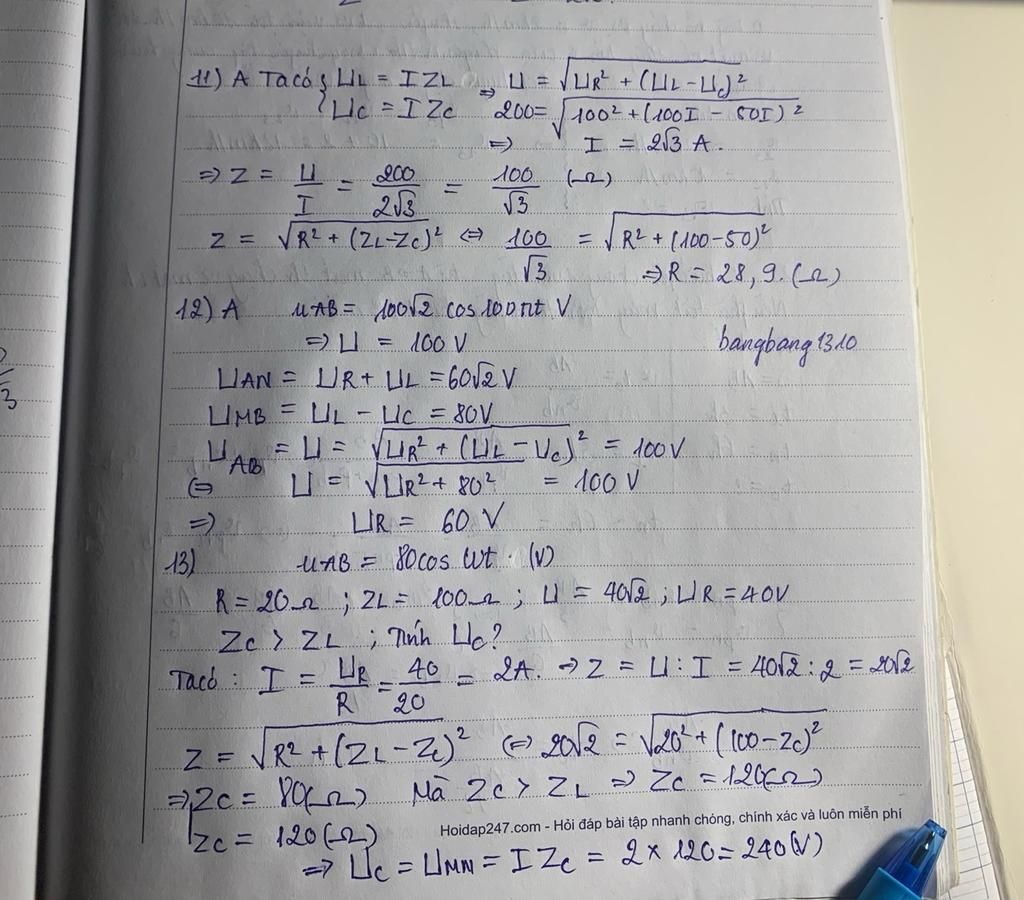 11) A Ta có { UL = I ZL ⇒ U = √(UR² + (UL - UC)²
UC = I ZC 200 = √(100² + (100I - 50I)²
⇒ I = 2√3 A.
⇒ Z = U/I = 200/2√3 = 100/√3 (Ω)
Z = √(R² + (ZL - ZC)² ⇔ 100/√3 = √(R² + (100-50)²
⇒ R = 28,9. (Ω)
12) A uAB = 100√2 cos 100πt V
⇒ U = 100 V
bangbang1310
UAN = UR + UL = 60√2 V
UMB = UL - UC = 80V
UAB = U = √(UR² + (UL - UC)² = 100V
⇔ U = √(UR² + 80² = 100 V
⇒ UR = 60 V
13) uAB = 80cos ωt . (V)
R = 20Ω ; ZL = 100Ω ; U = 40√2 ; UR = 40V
ZC > ZL ; Tính UC?
Ta có : I = UR/R = 40/20 = 2A. ⇒ Z = U : I = 40√2 : 2 = 20√2
Z = √(R² + (ZL - ZC)² ⇔ 20√2 = √(20² + (100 - ZC)²
⇒ [ ZC = 80(Ω) Mà ZC > ZL ⇒ ZC = 120(Ω)
ZC = 120(Ω)
Hoidap247.com - Hỏi đáp bài tập nhanh chóng, chính xác và luôn miễn phí
⇒ UC = UMN = I ZC = 2 × 120 = 240(V)